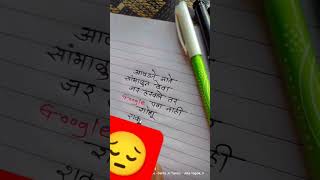 आपले नाते
सांभाळून ठेवा
जर हरवले तर
Google पण नाही
शोधू
शकत